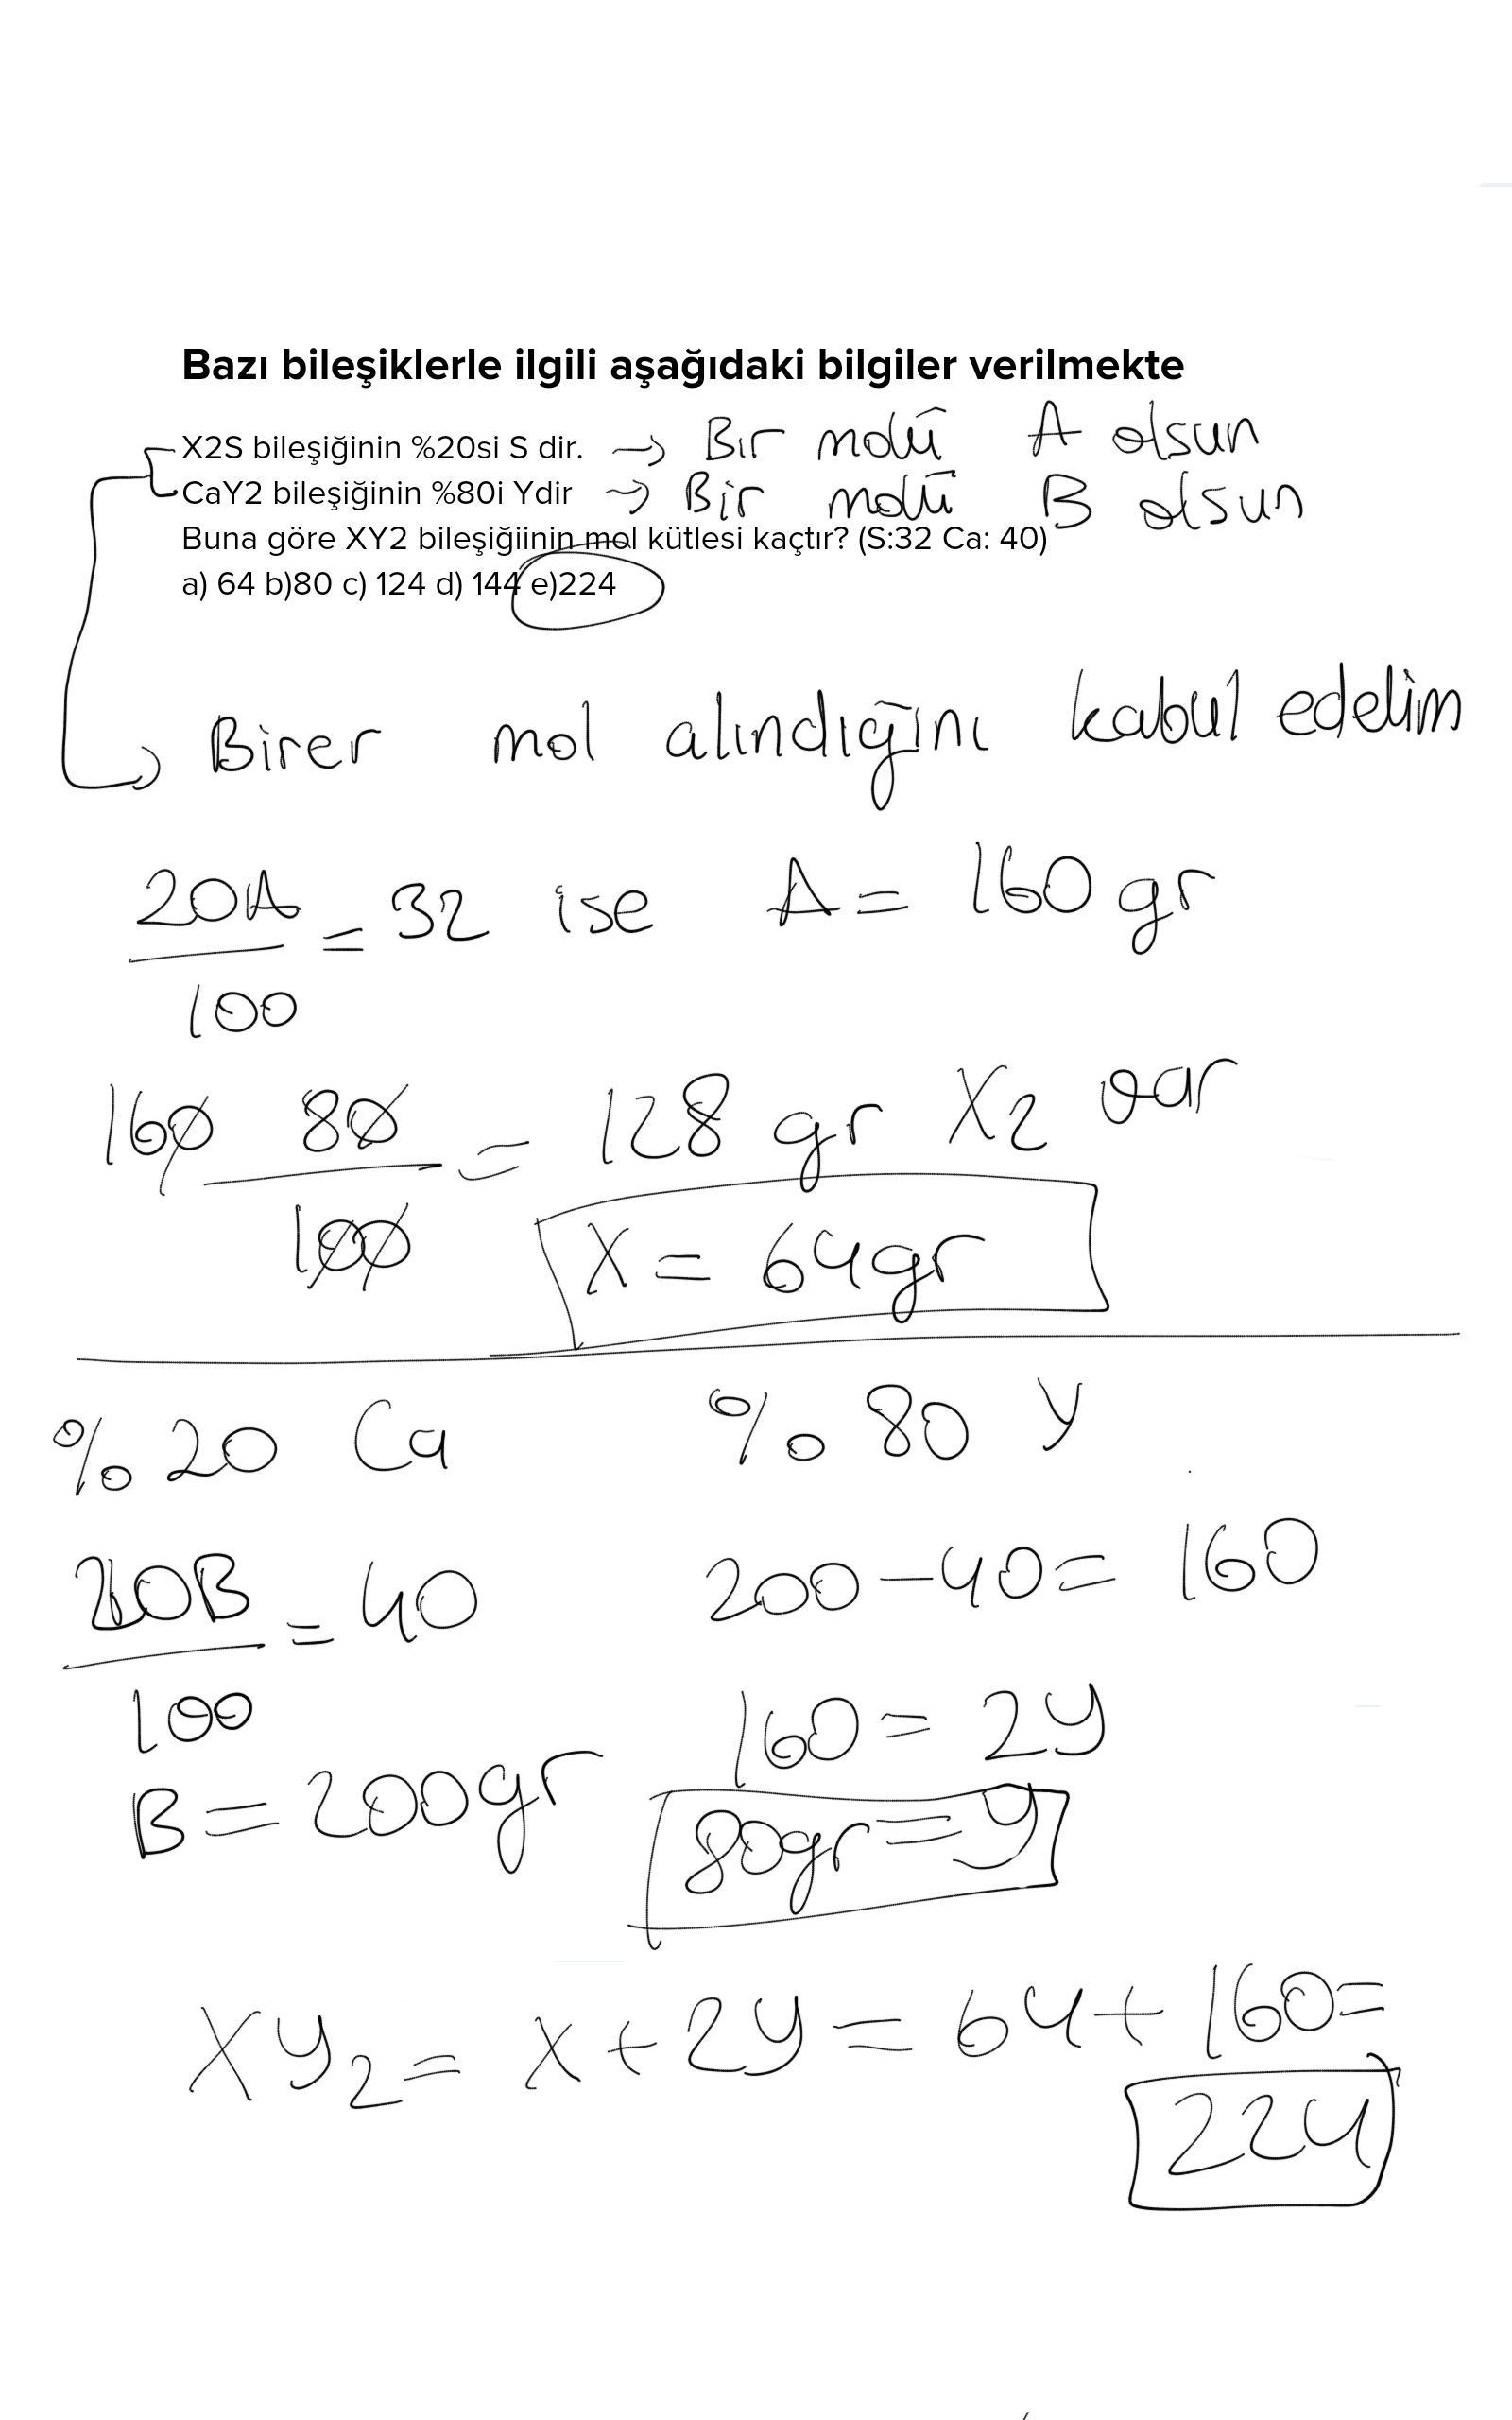 Bazı bileşiklerle ilgili aşağıdaki bilgiler verilmekte
X2S bileşiğinin %20si S dir. → Bir molü A olsun
CaY2 bileşiğinin %80i Ydir → Bir molü B olsun
Buna göre XY2 bileşiğiinin mol kütlesi kaçtır? (S:32 Ca: 40)
a) 64 b)80 c) 124 d) 144 e)224
Birer mol alındığını kabul edelim
20A/100 = 32 ise A = 160 gr
160 80/100 = 128 gr X2 var
X = 64gr
%20 Ca %80 Y
20B/100 = 40 200-40= 160
160= 2Y
B = 200gr 80gr = Y
XY2 = X + 2Y = 64 + 160 =
224